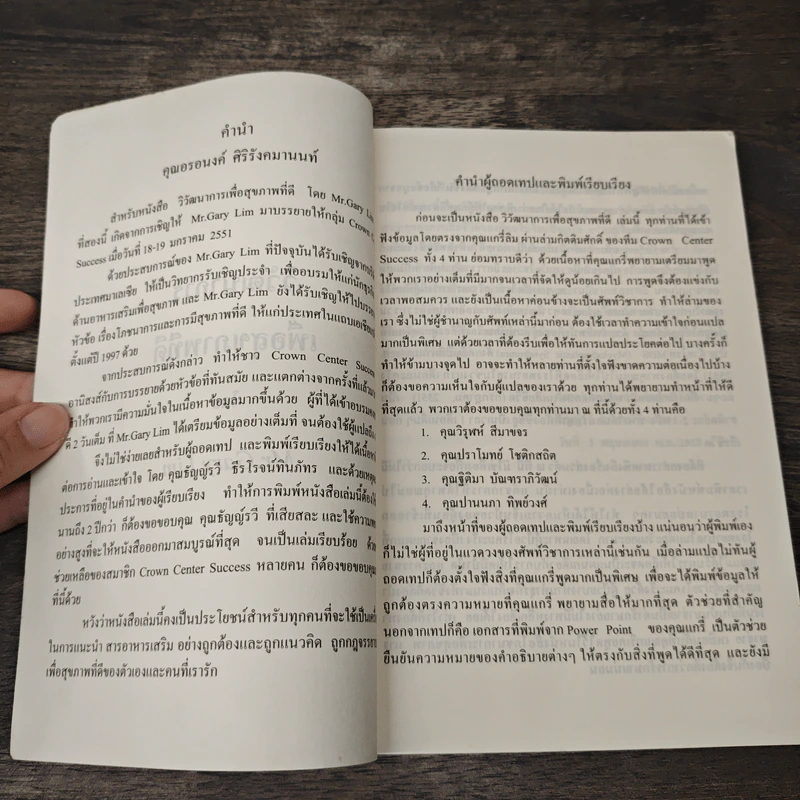 คำนำ
คุณอรอนงค์ ศิริรังคมานนท์
สำหรับหนังสือ วิวัฒนาการเพื่อสุขภาพที่ดี โดย Mr.Gary
ที่สองนี้ เกิดจากการเชิญให้ Mr.Gary Lim มาบรรยายให้กลุ่ม Crown
Success เมื่อวันที่ 18-19 มกราคม 2551
ด้วยประสบการณ์ของ Mr.Gary Lim ที่ปัจจุบันได้รับเชิญจาก
ประเทศมาเลเซีย ให้เป็นวิทยากรรับเชิญประจำ เพื่ออบรมให้แก่
ด้านอาหารเสริมเพื่อสุขภาพ และ Mr.Gary Lim ยังได้รับเชิญให้ไป
หัวข้อ เรื่องโภชนาการและการมีสุขภาพที่ดี ให้แก่ประเทศในแถบ
ตั้งแต่ปี 1997 ด้วย
จากประสบการณ์ดังกล่าว ทำให้ชาว Crown Center Success
อานิสงส์กับการบรรยายด้วยหัวข้อที่ทันสมัย และแตกต่างจากครั้งที่แล้ว
ทำให้พวกเรามีความมั่นใจในเนื้อหาข้อมูลมากขึ้นด้วย ผู้ที่ได้เข้าอบรม
ดี 2 วันเต็ม ที่ Mr.Gary Lim ได้เตรียมข้อมูลอย่างเต็มที่ จนต้องใช้ผู้แปลถึง
จึงไม่ใช่ง่ายเลยสำหรับผู้ถอดเทป และพิมพ์เรียบเรียงให้ได้เนื้อ
ต่อการอ่านและเข้าใจ โดย คุณธัญญ์รวี ธีรโรจน์ทินภัทร และด้วยเหตุ
ประการที่อยู่ในคำนำของผู้เรียบเรียง ทำให้การพิมพ์หนังสือเล่มนี้ต้อง
นานถึง 2 ปีกว่า ก็ต้องขอขอบคุณ คุณธัญญ์รวี ที่เสียสละ และใช้ความ
อย่างสูงที่จะให้หนังสือออกมาสมบูรณ์ที่สุด จนเป็นเล่มเรียบร้อย
ช่วยเหลือของสมาชิก Crown Center Success หลายคน ก็ต้องขอขอบคุณ
ที่นี้ด้วย
หวังว่าหนังสือเล่มนี้คงเป็นประโยชน์สำหรับทุกคนที่จะใช้เป็น
ในการแนะนำ สารอาหารเสริม อย่างถูกต้องและถูกแนวคิด ถูกกฎ
เพื่อสุขภาพที่ดีของตัวเองและคนที่เรารัก
คำนำผู้ถอดเทปและพิมพ์เรียบเรียง
ก่อนจะเป็นหนังสือ วิวัฒนาการเพื่อสุขภาพที่ดี เล่มนี้ ทุกท่านที่ได้เข้า
ฟังข้อมูลโดยตรงจากคุณแกรี่ลิม ผ่านล่ามกิตติมศักดิ์ ของทีม Crown Center
Success ทั้ง 4 ท่าน ย่อมทราบดีว่า ด้วยเนื้อหาที่คุณแกรี่พยายามเตรียมมาพูด
ให้พวกเราอย่างเต็มที่มีมากจนเวลาที่จัดให้ดูน้อยเกินไป การพูดจึงต้องแข่งกับ
เวลาพอสมควร และยังเป็นเนื้อหาค่อนข้างจะเป็นศัพท์วิชาการ ทำให้ล่ามของ
เรา ซึ่งไม่ใช่ผู้ชำนาญกับศัพท์เหล่านี้มาก่อน ต้องใช้เวลาทำความเข้าใจก่อนแปล
มากเป็นพิเศษ แต่ด้วยเวลาที่ต้องรีบเพื่อให้ทันการแปลประโยคต่อไป บางครั้งก็
ทำให้ข้ามบางจุดไป อาจจะทำให้หลายท่านที่ตั้งใจฟังขาดความต่อเนื่องไปบ้าง
ก็ต้องขอความเห็นใจกับผู้แปลของเราด้วย ทุกท่านได้พยายามทำหน้าที่ให้ดี
ที่สุดแล้ว พวกเราต้องขอขอบคุณทุกท่านมา ณ ที่นี้ด้วยทั้ง 4 ท่านคือ
1. คุณวิรุฬห์ สีมาขจร
2. คุณปราโมทย์ โชติกสถิต
3. คุณฐิติมา บัณฑราภิวัฒน์
4. คุณปานนภา ทิพย์วงศ์
มาถึงหน้าที่ของผู้ถอดเทปและพิมพ์เรียบเรียงบ้าง แน่นอนว่าผู้พิมพ์เอง
ก็ไม่ใช่ผู้ที่อยู่ในแวดวงของศัพท์วิชาการเหล่านี้เช่นกัน เมื่อล่ามแปลไม่ทันผู้
ถอดเทปก็ต้องตั้งใจฟังสิ่งที่คุณแกรี่พูดมากเป็นพิเศษ เพื่อจะได้พิมพ์ข้อมูลให้
ถูกต้องตรงความหมายที่คุณแกรี่ พยายามสื่อให้มากที่สุด ตัวช่วยที่สำคัญ
นอกจากเทปก็คือ เอกสารที่พิมพ์จาก Power Point ของคุณแกรี่ เป็นตัวช่วย
ยืนยันความหมายของคำอธิบายต่างๆ ให้ตรงกับสิ่งที่พูดได้ดีที่สุด และยังมี